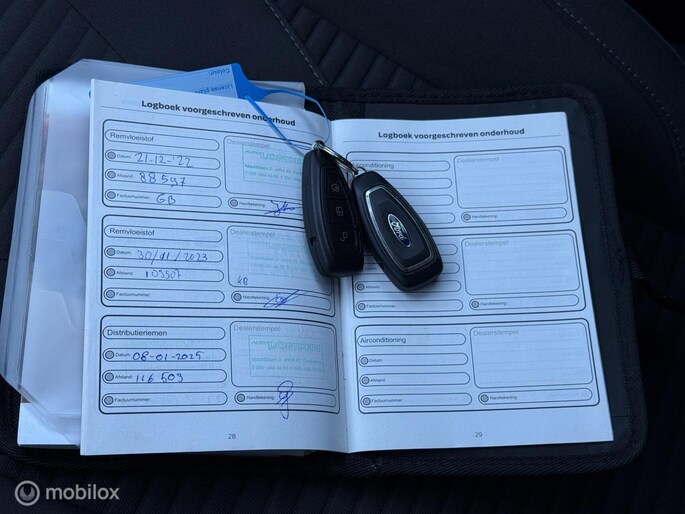 Colour:
License plate
Logboek voorgeschreven onderhoud
Remvloeistof
Dealerstempel
Datum: 21-12-'22
Afstand: 88597
Factuurnummer: GB
Handtekening:
Remvloeistof
Dealerstempel
Datum: 30/11/2023
Afstand: 103507
KB
Factuurnummer:
Handtekening:
Distributieriemen
Dealerstempel
Datum: 08-01-2025
Afstand: 116509
Factuurnummer:
Handtekening:
28
Logboek voorgeschreven onderhoud
Airconditioning
Dealerstempel
Handtekening:
Dealerstempel
Afstand:
Factuurnummer:
Handtekening:
Airconditioning
Dealerstempel
Datum:
Afstand:
Factuurnummer:
Handtekening:
29
Ford
mobilox